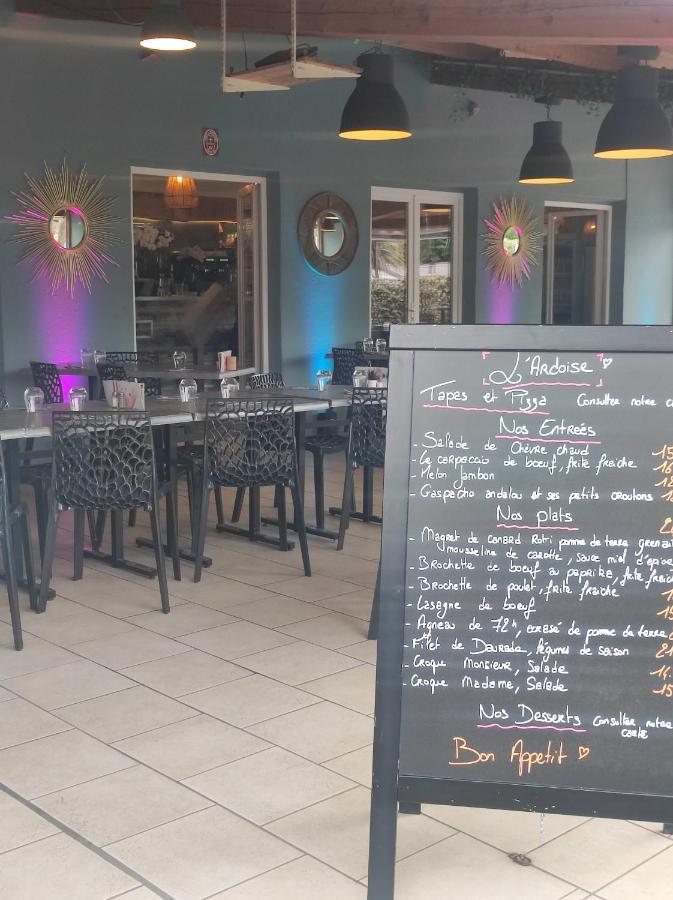 L'Ardoise
Tapes et Pizza Consulter notre c
Nos Entreés
- Salade de Chèvre chaud 15
- Le carpaccio de boeuf, frite fraiche 16
- Melon jambon
- Gaspacho andalou et ses petits croutons 1
Nos plats
- Magret de canard Roti pomme de terre grenai
mousseline de carotte, sauce miel d'épice
- Brochette de boeuf au paprika, frite fraich
- Brochette de poulet, frite fraiche
- Lasagne de boeuf
- Agneau de 72h, ecrasé de pomme de terre
- Filet de Daurade, légumes de saison 21
- Croque Monsieur, Salade 14
- Croque Madame, Salade 15
Nos Desserts Consulter notre
carte
Bon Appetit